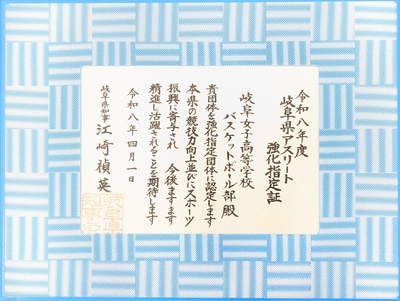 令和八年度
岐阜県アスリート
強化指定証
岐阜女子高等学校
バスケットボール部 殿
貴団体を強化指定団体に認定します
本県の競技力向上並びにスポーツ
振興に寄与され 今後ますます
精進し活躍されることを期待します
令和八年四月一日
岐阜県知事 江崎禎英
岐阜県
知事印